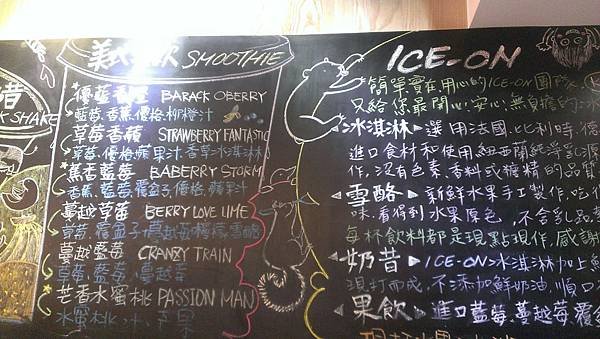 昔
SHAKE
美式 飲 SMOOTHIE
優藍香橙 BARACK OBERRY
藍莓、香蕉、優格、柳橙汁
草莓香積 STRAWBERRY FANTASTIC
草莓、優格、蘋果汁、香草冰淇淋
蕉香藍莓 BABERRY STORM
香蕉、藍莓、覆盆子、優格、蘋果汁
蔓越草莓 BERRY LOVE LIME
草莓、覆盆子、蔓越莓、檸檬、雪酪
蔓越藍莓 CRANZY TRAIN
草莓、藍莓、蔓越莓
芒香水蜜桃 PASSION MAN
水蜜桃、冰、芒果
ICE-ON
簡單實在用心的ICE-ON團隊
又給您最開心、安心、無負擔的冰
冰淇淋 選用法國、比利時、德
進口食材和使用紐西蘭純淨乳源
作,沒有色素、香料或糖精的品質
雪酪 新鮮水果手工製作,吃得
味,看得到水果原色,不含乳品
每杯飲料都是現點現作,感謝
奶昔 ICE-ON冰淇淋加上鮮
現打而成,不添加鮮奶油,順口
果飲 進口藍莓、蔓越莓、覆盆